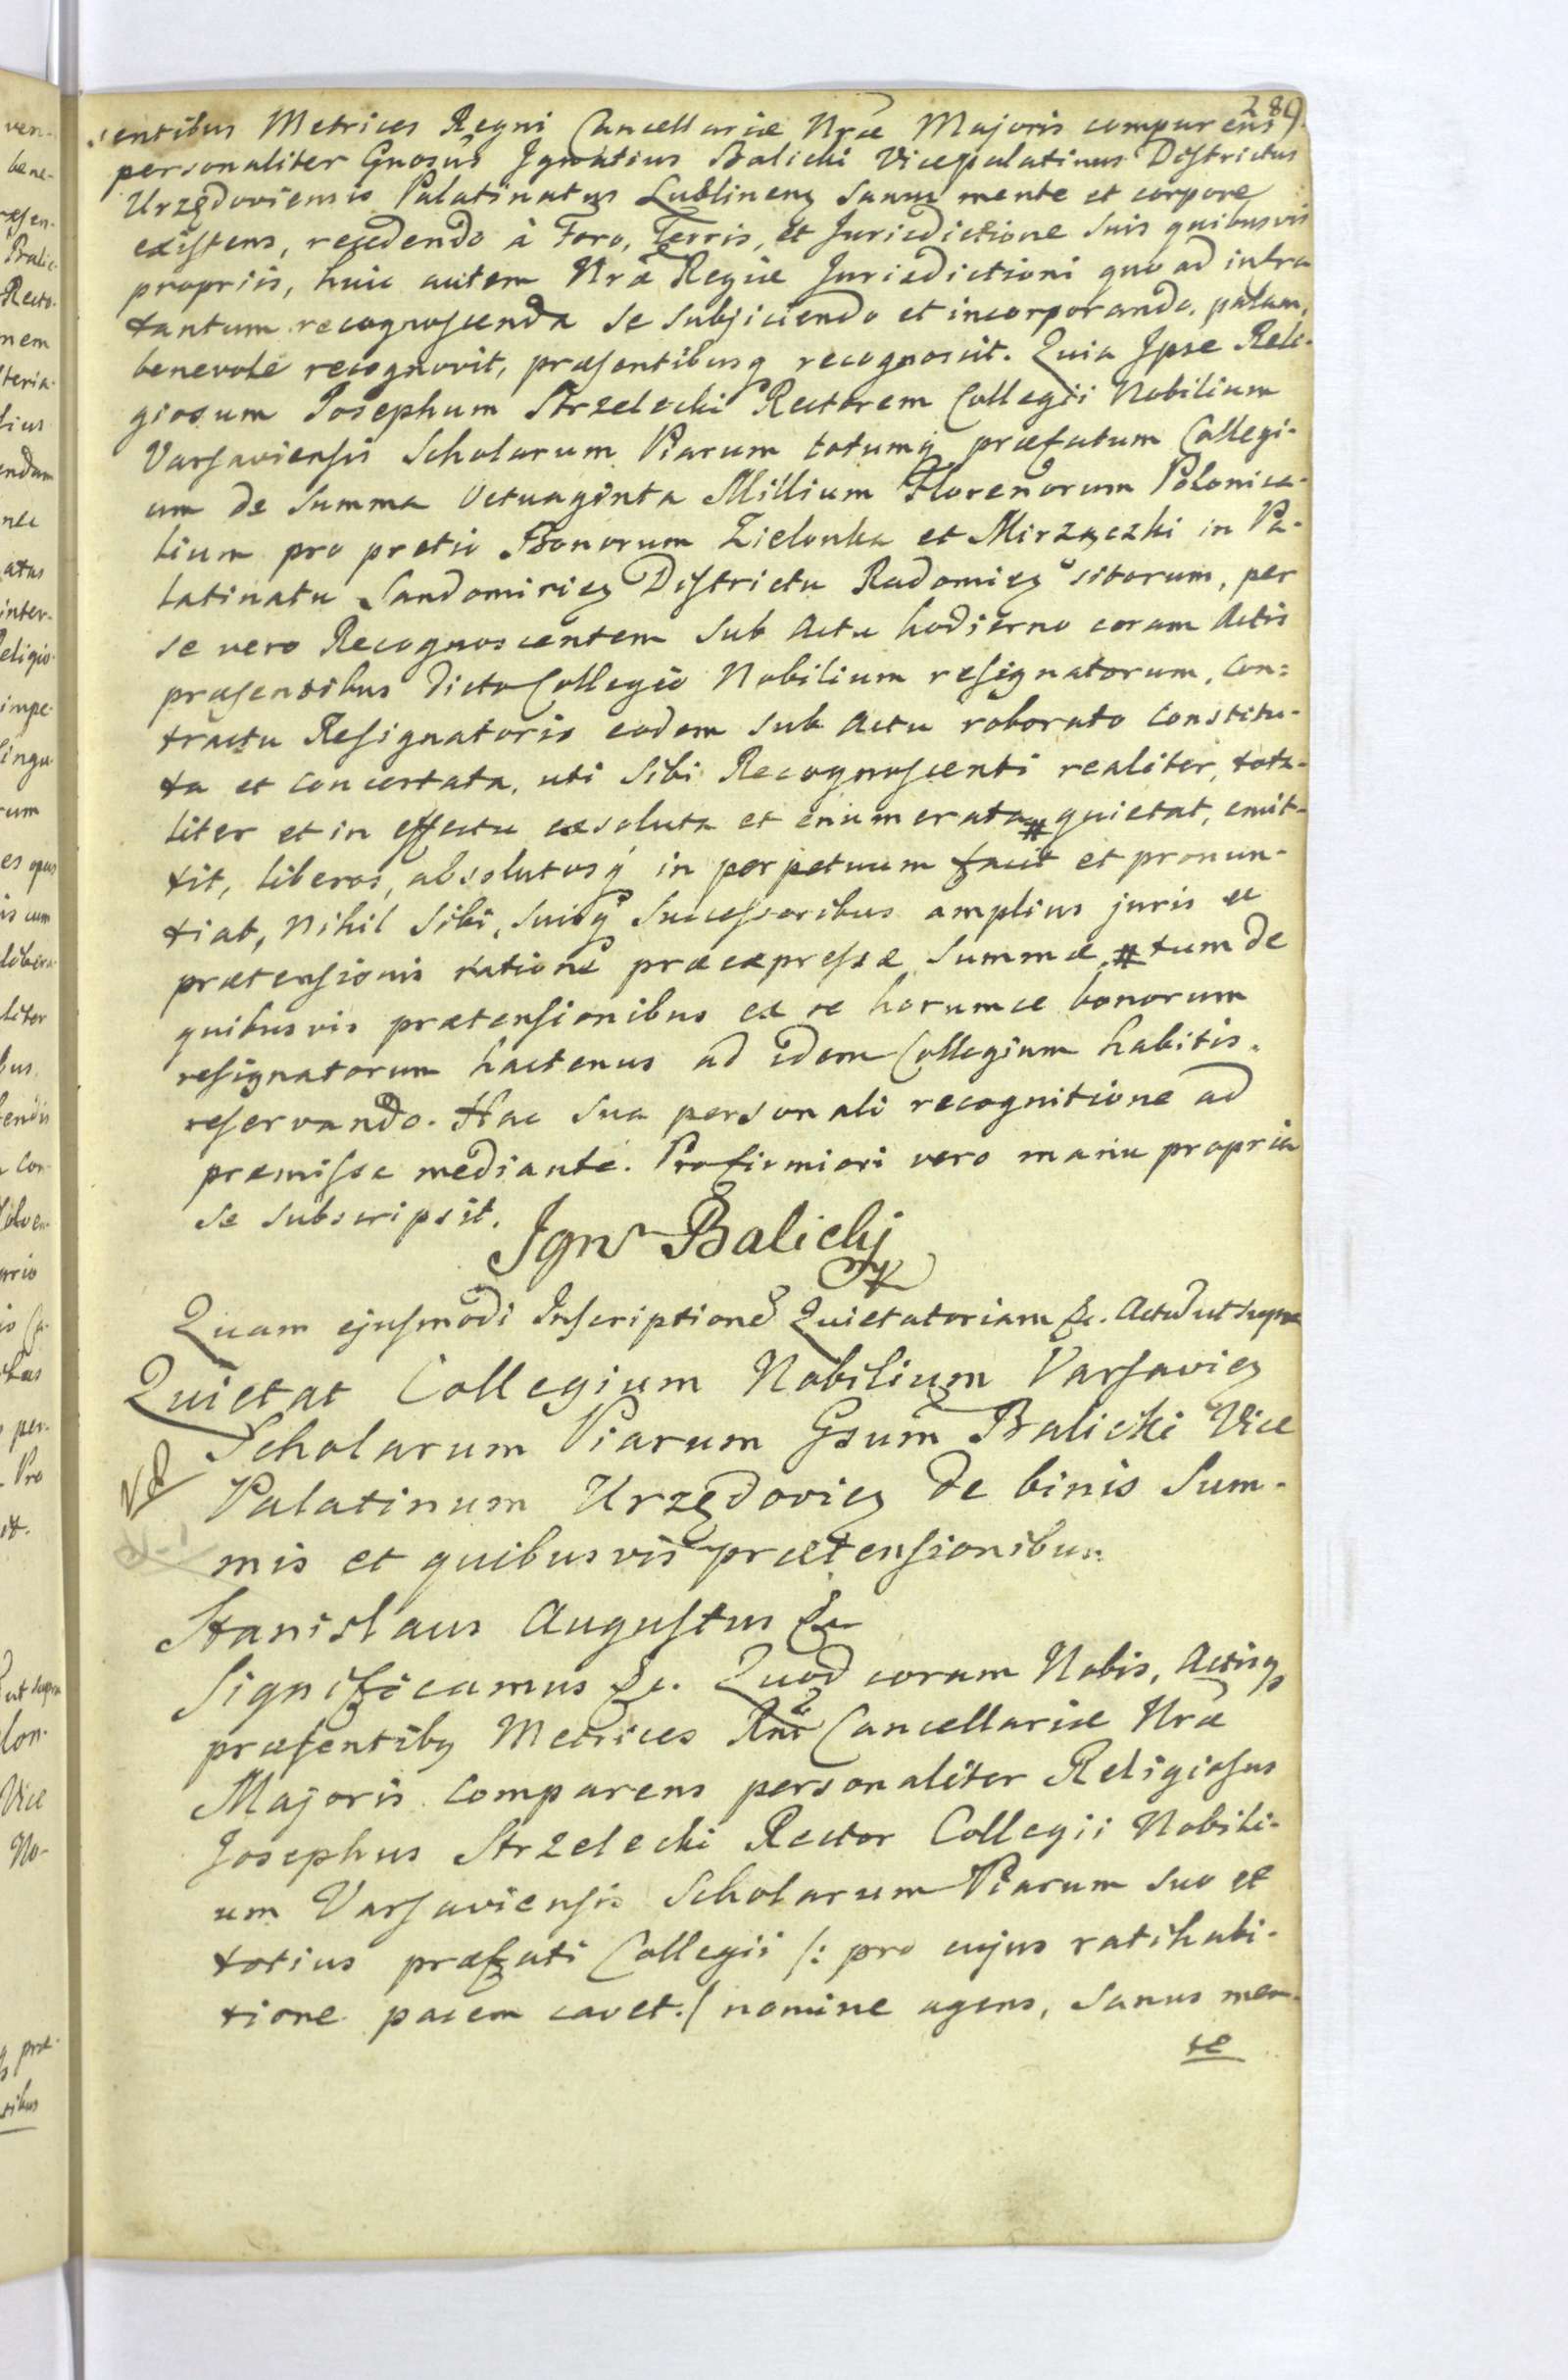 289.
sentibus Metrices Regni Cancellariæ Nræ Majoris comparens
personaliter Gnosus Ignatius Balicki Vicepalatinus Districtus
Urzędoviensis Palatinatus Lublinens Sanus mente et corpore
existens, recedendo à Foro, Terris, et Jurisdictione suis quibusvis
propriis, huic autem Nræ Regiæ Jurisdictioni quo ad infra
tantum recognoscenda se subjiciendo et incorporando, palam,
benevole recognovit, præsentibusq recognoscit. Quia Ipse Reli-
giosum Josephum Strzelecki Rectorem Collegii Nobilium
Varsaviensis Scholarum Piarum totumq præfatum Collegi-
um de Summa Octuaginta Millium Florenorum Polonica-
lium pro pretio Bonorum Zielonka et Mirzączki in Pa-
latinatu Sandomirien Districtu Radomien sitorum, per
se vero Recognoscentem sub Actu hodierno coram Actis
præsentibus dicto Collegio Nobilium resignatorum, Con=
tractu Resignatoris eodem sub Actu roborato Constitu-
ta et concertata, uti sibi Recognoscenti realiter, tota-
liter et in effectu exsoluta et enumerata # quietat, emit-
tit, liberos, absolutosq in perpetuum facit et pronun-
tiat, Nihil sibi, suisq Successoribus amplius juris et
prætensionis ratione præexpressæ Summæ # tum de
quibusvis prætensionibus ex re harumce bonorum
resignatorum hactenus ad idem Collegium habitis.
reservando. Hac sua personali recognitione ad
præmissa mediante. Pro firmiori vero manu propria
se subscripsit.
Ign Balickj
Quam ejusmodi Inscriptione Quietatoriam &c. Actu ut supra
Quietat Collegium Nobilium Varsavien
Scholarum Piarum Gsum Balicki Vice
Palatinum Urzędovien de binis Sum-
mis et quibusvis prætensionibus
Stanislaus Augustus &c
Significamus &c. Quod coram Nobis, Actisq
præsentibq Metrices Rni Cancellariæ Nræ
Majoris comparens personaliter Religiosus
Josephus Strzelecki Rector Collegii Nobili-
um Varsaviensis Scholarum Piarum suo et
totius præfati Collegii /: pro cujus ratihabi-
tione pacem cavet./ nomine agens, Sanus men-
te